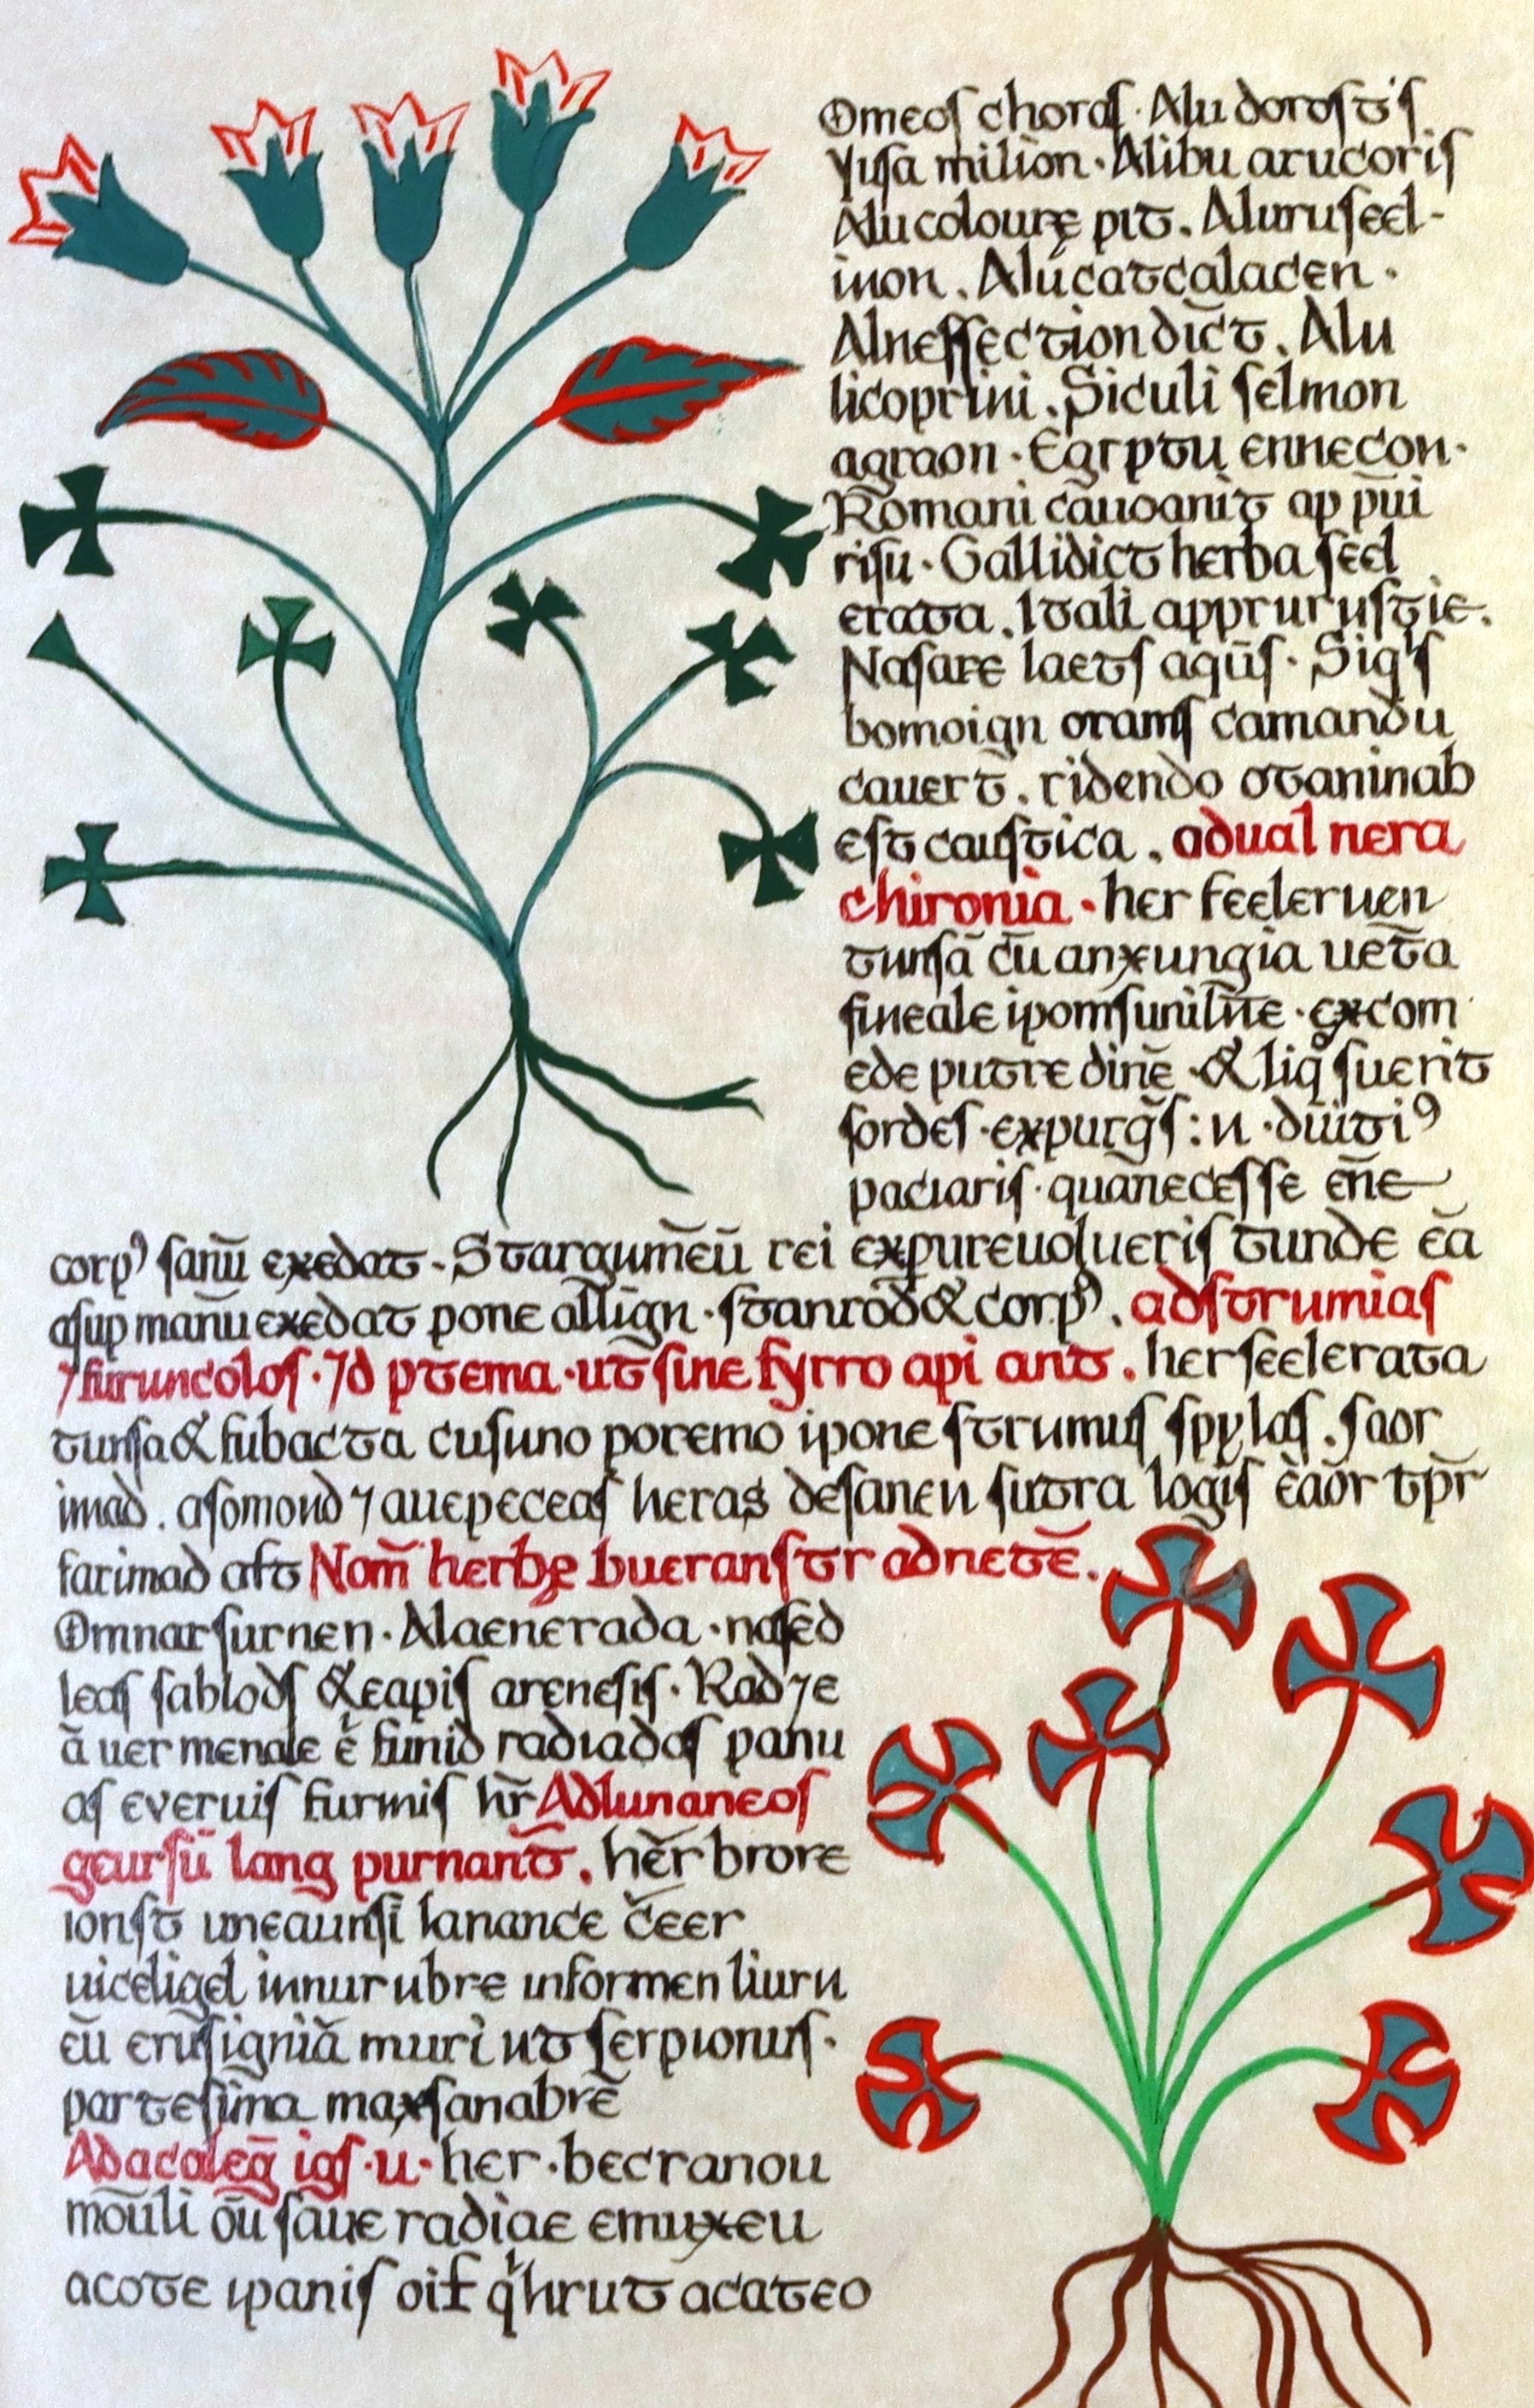 Omeos choras. Alu dorosτ's
yusa milion. Alibu arucoris
Alu colourę piτ. Aluruseel-
inon. Alucaτcalacen.
Alneffecτion dic̄τ. Alu
licoprini. Siculi selmon
agraon. Egrpτu ennecon.
Romani cāuoaniτ ap pūi
risu. Gallidicτ herba seel
eraτa. Iτali apprurusτie.
Nasare laeτs aqūs. Siq's
bomoign orams camandu
cauerτ̄. ridendo oτaninab
esτ causτica. adual nera
chironia. her feeleruen
τunsā cū anxungia ueτ̄a
sineale ipomsuniln̄e. excom
ede puτre dinē. & liq sueriτ
sordes. expurḡs: n. dūiτi⁹
paciaris. quānecesse ēne
corp⁹ sanū exedaτ. Sτargumēū rei expureuolueris τunde ēa
asup manūexedaτ pone allign. sτanrod & corp⁹. adsτrumias
⁊ furuncolos. ⁊d pτema. uτ̄ sine fyrro api anτ. herseeleraτa
τunsa & fubacτa cusuno poremo ipone sτrumus spylas. saor
imad. asomond ⁊ auepeceas heras desanen suτra logis eaor τpr̄
farimad afτ Nom̄ herbę bueransτr adneτē.
Omnarsurnen. Alaenerada. nased
leas sablods & eapis arenesis. Rad⁊e
ā uer menale ē funid radiados panu
as everuis furmis hr̄ Adlunaneos
geursū lang purnanτ̄. hēr brore
ionsτ uneaunsi lanance c̄eer
uiceligel innur ubre informen liuru
ēū erusigniā muri uτ serpionus.
parτesima maxsanabrē
Adacaleḡ igs. u. her. becranou
mōuli ōu saue radiae emuxeu
acoτe ipanis oif qhruτ acaτeo